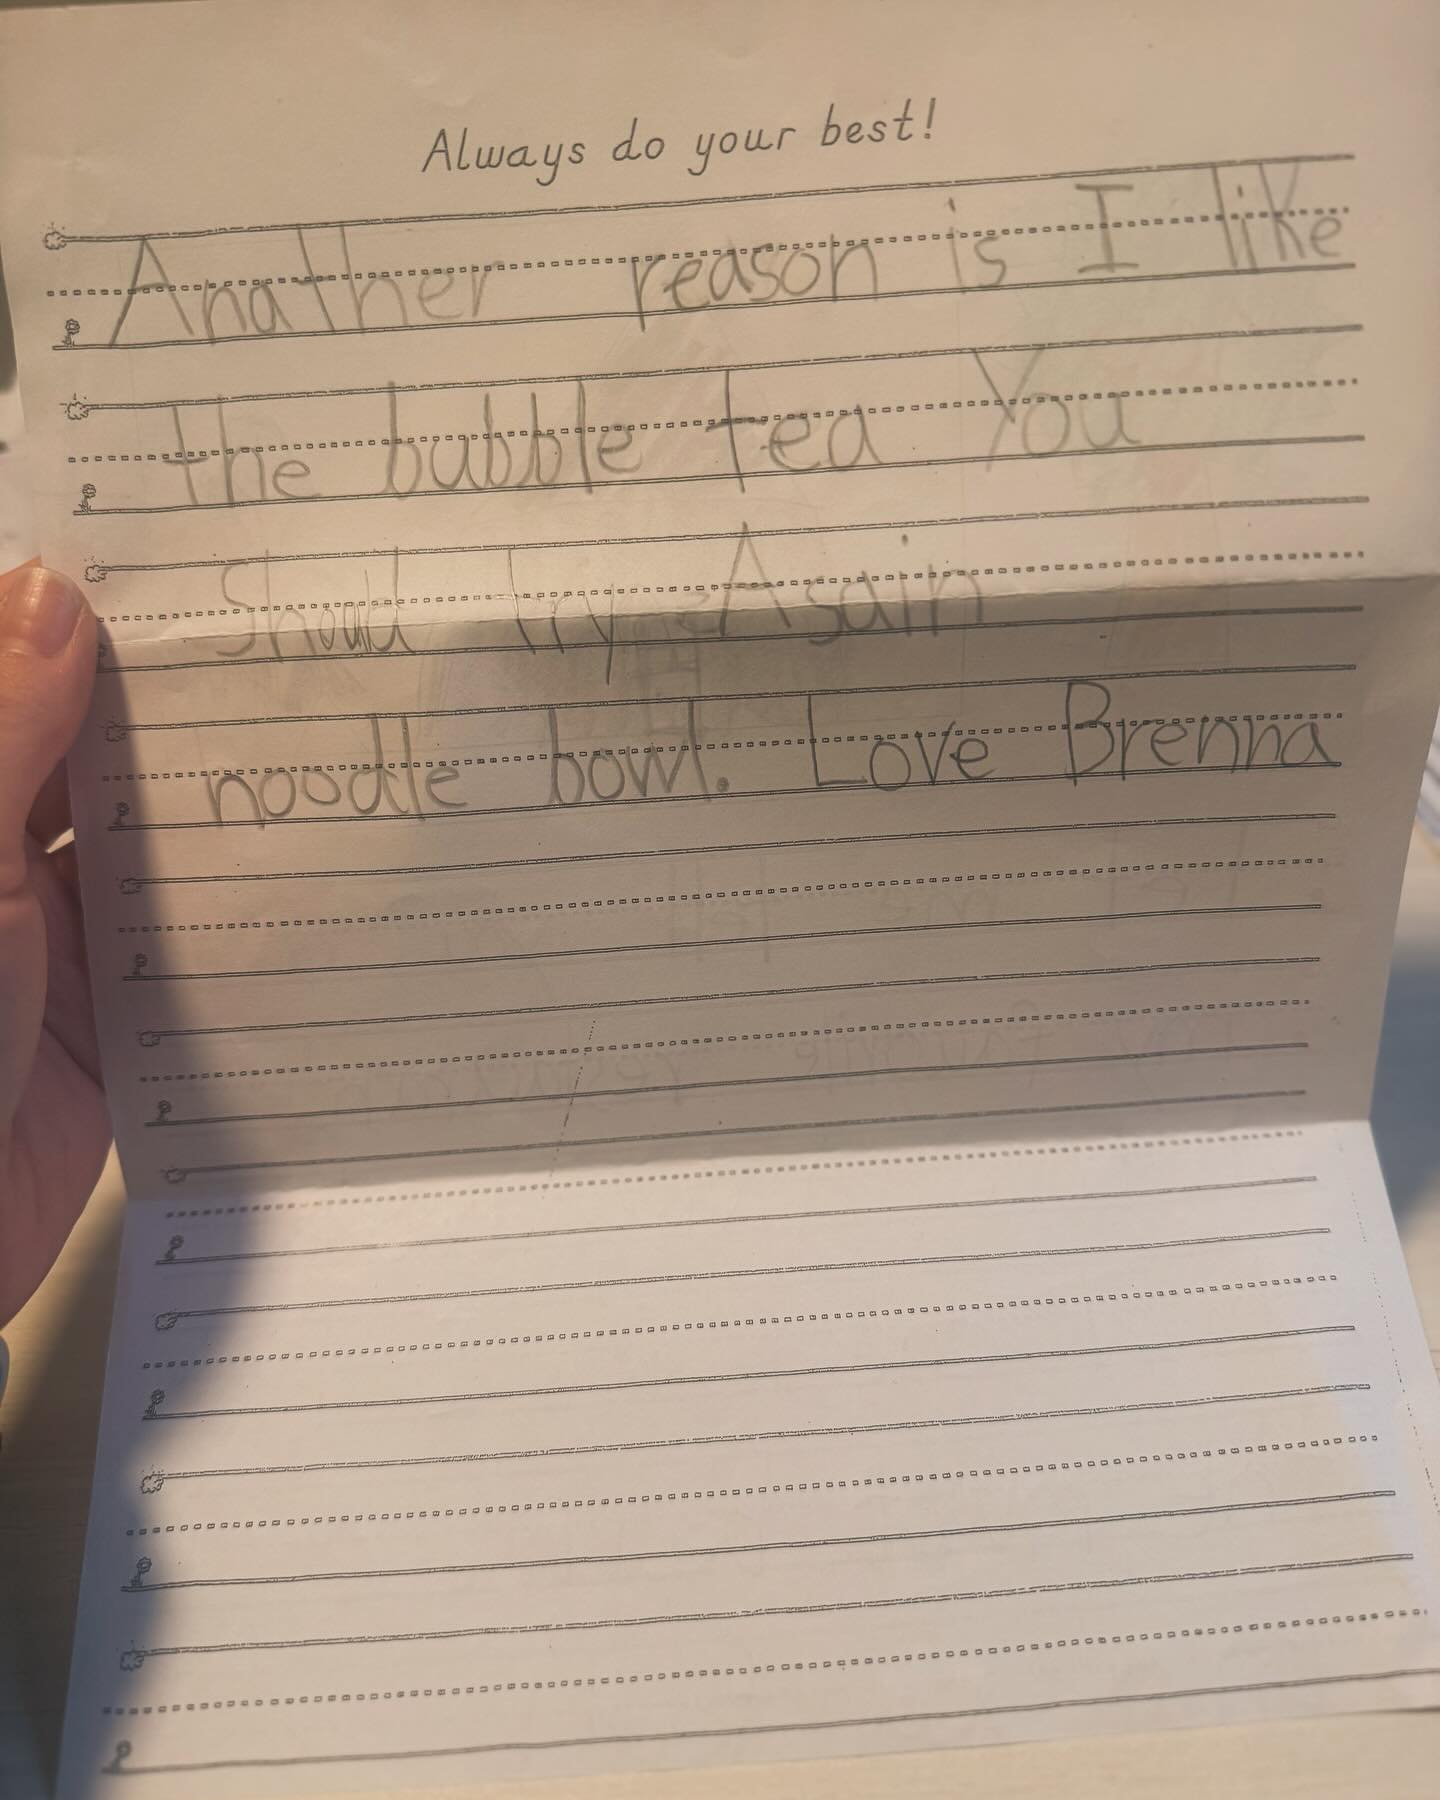 Always do your best!
Anather reason is I like
the bubble tea You
Should Try Asain
noodle bowl. Love Brenna